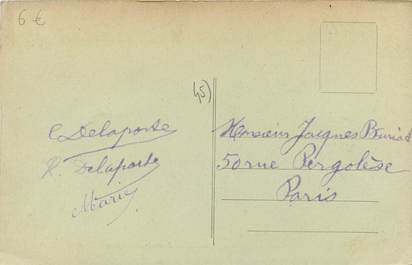 6 €
45)
C. Delaporte
R. Delaporte
Marie
Monsieur Jacques
50 rue Pergolèse
Paris